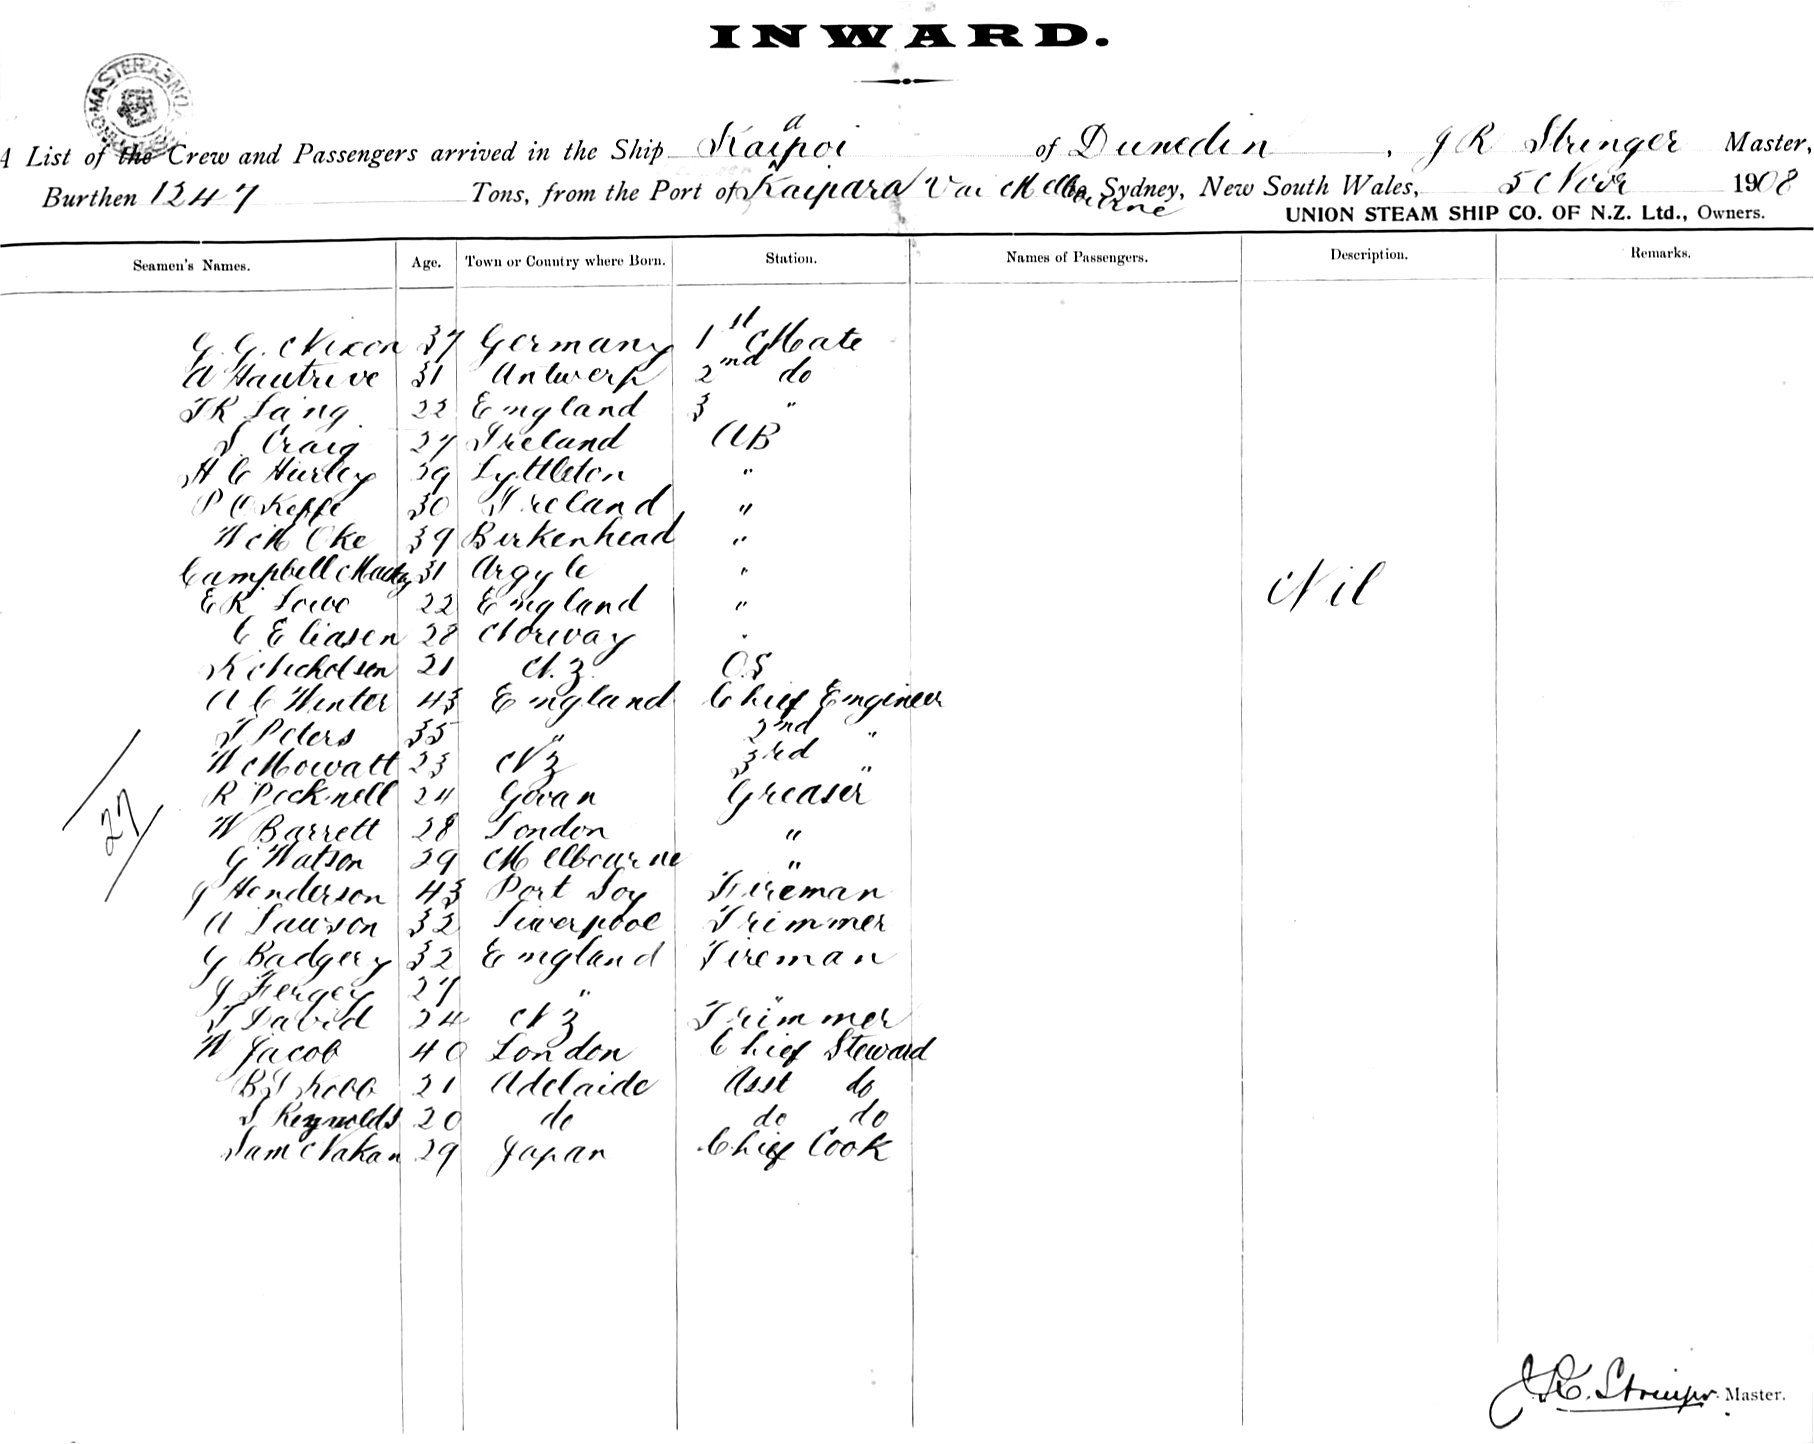 INWARD.
A List of the Crew and Passengers arrived in the Ship Kaiapoi of Dunedin, J R Stringer Master,
Burthen 1247 Tons, from the Port of Kaipara Via Melbourne Sydney, New South Wales, 5 Novr 1908
UNION STEAM SHIP CO. OF N.Z. Ltd., Owners.
Seamen's Names. Age. Town or Country where Born. Station. Names of Passengers. Description. Remarks.
G. G. Nixon 37 Germany 1st Mate
A Hautrive 31 Antwerp 2nd do
T R Laing 22 England 3 "
S. Craig 27 Ireland AB
H C Hurley 39 Lyttleton "
P O Keffe 30 Ireland "
W M Oke 39 Birkenhead "
Campbell Mackay 31 Argyle "
Nil
E R Lowe 22 England "
C Eliasen 28 Norway "
K Nicholson 21 N.Z. O.S
A C Winter 43 England Chief Engineer
T Peters 35 " 2nd "
W Mowatt 23 N Z 3rd "
R Picknell 24 Govan Greaser
27
W Barrett 28 London "
G Watson 29 Melbourne "
J Henderson 43 Port Soy Fireman
A Lawson 32 Liverpool Trimmer
G Badgery 32 England Fireman
J Fergey 27 " "
T David 24 N Z Trimmer
W Jacob 40 London Chief Steward
B J Robb 21 Adelaide Asst do
S Reynolds 20 do do do
Sam Nakan 29 Japan Chief Cook
J R. Stringer Master.